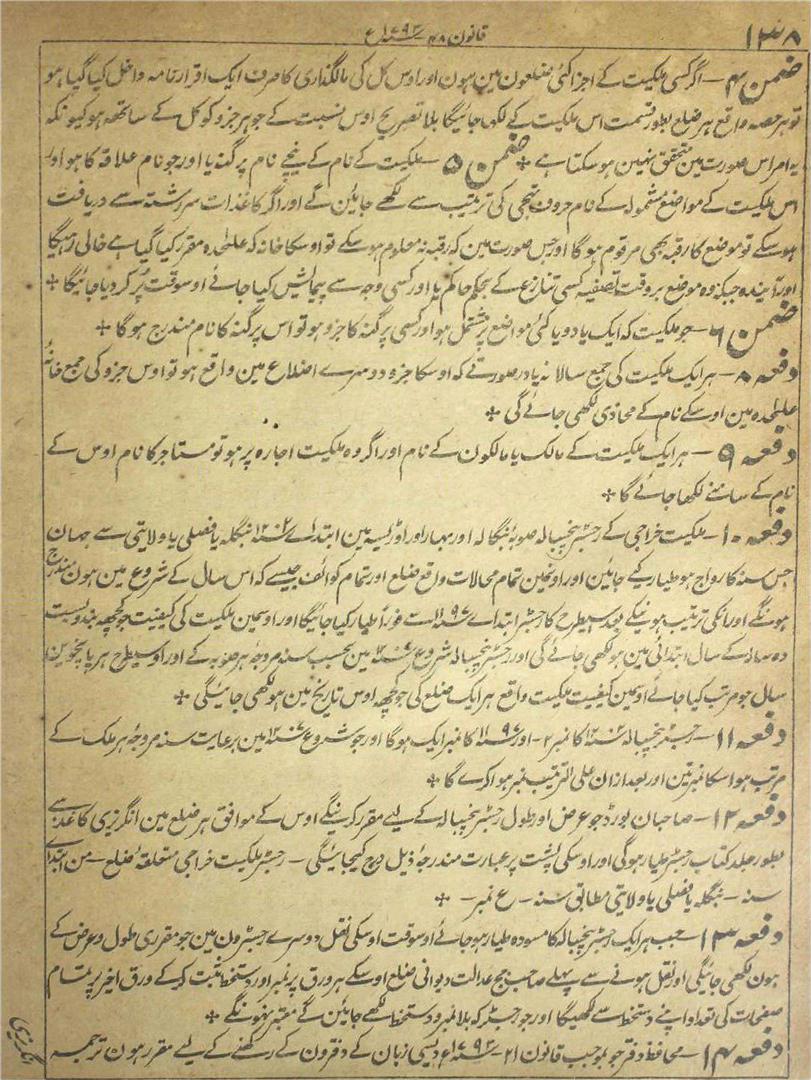 ۱۳۸
قانون ۴۸ سنہ ۱۷۹۳ع
ضمن ۴ – اگر کسی ملکیت کے اجزا کئی ضلعون مین ہون اور اوس کل کی مالگذاری کا صرف ایک اقرار نامہ داخل کیا گیا ہو
تو ہر حصہ واقع ہر ضلع بطور قسمت اس ملکیت کے لکھا جائیگا بلا تصریح اوس نسبت کے جو ہر جزو کو کل کے ساتھہ ہو کیونکہ
یہ امر اس صورت مین متحقق نہین ہو سکتا ہے * ضمن ۵ – ملکیت کے نام کے نیچے نام پرگنہ یا اور جو نام علاقہ کا ہو اور
اس ملکیت کے مواضع مشمولہ کے نام حروف تہجی کی ترتیب سے لکھے جائین گے اور اگر کاغذات سررشتہ سے دریافت
ہو سکے تو موضع کا رقبہ بھی مرقوم ہو گا اور جس صورت مین کہ رقبہ نہ معلوم ہو سکے تو اوسکا خانہ کہ علٰحدہ مقرر کیا گیا ہے خالی رہیگا
اور آیندہ جبکہ وہ موضع بر وقت تصفیہ کسی تنازع کے بحکم حاکم یا اور کسی وجہ سے پیمایش کیا جائے اوسوقت پُر کر دیا جائیگا *
ضمن ۶ – جو ملکیت کہ ایک یا دو یا کئی مواضع پر مشتمل ہو اور کسی پرگنہ کا جزو ہو تو اس پرگنہ کا نام مندرج ہو گا *
دفعہ ۸ – ہر ایک ملکیت کی جمع سالانہ یا در صورتے کہ اوسکا جزو دوسرے اضلاع مین واقع ہو تو اوس جزو کی جمع خانۂ
علٰحدہ مین اوسکے نام کے محاذی لکھی جائے گی *
دفعہ ۹ – ہر ایک ملکیت کے مالک یا مالکون کے نام اور اگر وہ ملکیت اجارہ پر ہو تو مستاجر کا نام اوس کے
نام کے سامنے لکھا جائے گا *
دفعہ ۱۰ – ملکیت خراجی کے رجسٹر پنچسالہ صوبۂ بنگالہ اور بہار اور اوڑیسہ مین ابتداے سنہ ۱۲۰۲ بنگلہ یا فصلی یا ولایتی سے جہان
جس سنہ کا رواج ہو طیار کیے جائین اور اونمین تمام محالات واقع ضلع اور تمام کوائف جیسے کہ اس سال کے شروع مین ہون مندرج
ہونگے اور انکی ترتیب ہو نیکے بعد اسیطرح کا رجسٹر ابتداے سنہ ۱۱۹۷ سے فوراً طیار کیا جائیگا اور اوسمین ملکیت کی کیفیت جو کچھہ بندوبست
دہ سالہ کے سال ابتدائی مین ہو لکھی جائے گی اور رجسٹر پنچسالہ شروع سنہ ۱۲۰۷ مین بحسب سنہ مروجہ ہر صوبہ کے اور اوسیطرح ہر پانچوین
سال جو مرتب کیا جائے اوسمین کیفیت ملکیت واقع ہر ایک ضلع کی جو کچھہ اوس تاریخ مین ہو لکھی جائیگی *
دفعہ ۱۱ – رجسٹر پنچسالہ سنہ ۱۲۰۲ کا نمبر ۲ – اور سنہ ۱۱۹۷ کا نمبر ایک ہو گا اور جو شروع سنہ ۱۲۰۷ مین برعایت سنہ مروجہ ہر ملک کے
مرتب ہو اسکا نمبر تین اور بعد ازان علی الترتیب نمبر ہوا کرے گا *
دفعہ ۱۲ – صاحبان بورڈ جو عرض اور طول رجسٹر پنچسالہ کے لیے مقرر کرینگے اوس کے موافق ہر ضلع مین انگریزی کاغذ سے
بطور جلد کتاب رجسٹر طیار ہو گی اور اوسکی پشت پر عبارت مندرجۂ ذیل درج کیجائیگی – رجسٹر ملکیت خراجی متعلقہ ضلع – من ابتداے
سنہ – بنگلہ یا فصلی یا ولایتی مطابق سنہ – ع نمبر – *
دفعہ ۱۳ – جب ہر ایک رجسٹر پنچسالہ کا مسودہ طیار ہو جائے اوسوقت اوسکی نقل دوسرے رجسٹرون مین جو مقرری طول و عرض کے
ہون لکھی جائیگی اور نقل ہونے سے پہلے صاحب جج عدالت دیوانی ضلع اوسکے ہر ورق پر نمبر اور دستخط ثبت کر کے ورق اخیر پر تمام
صفحات کی تعداد اپنے دستخط سے لکھیگا اور جو رجسٹر کہ بلا نمبر و دستخط لکھے جائین گے معتبر نہونگے *
دفعہ ۱۴ – محافظ دفتر جو بموجب قانون ۲۱ – سنہ ۱۷۹۳ع دیسی زبان کے دفترون کے رکھنے کے لیے مقرر ہون ترجمہ
انگریزی